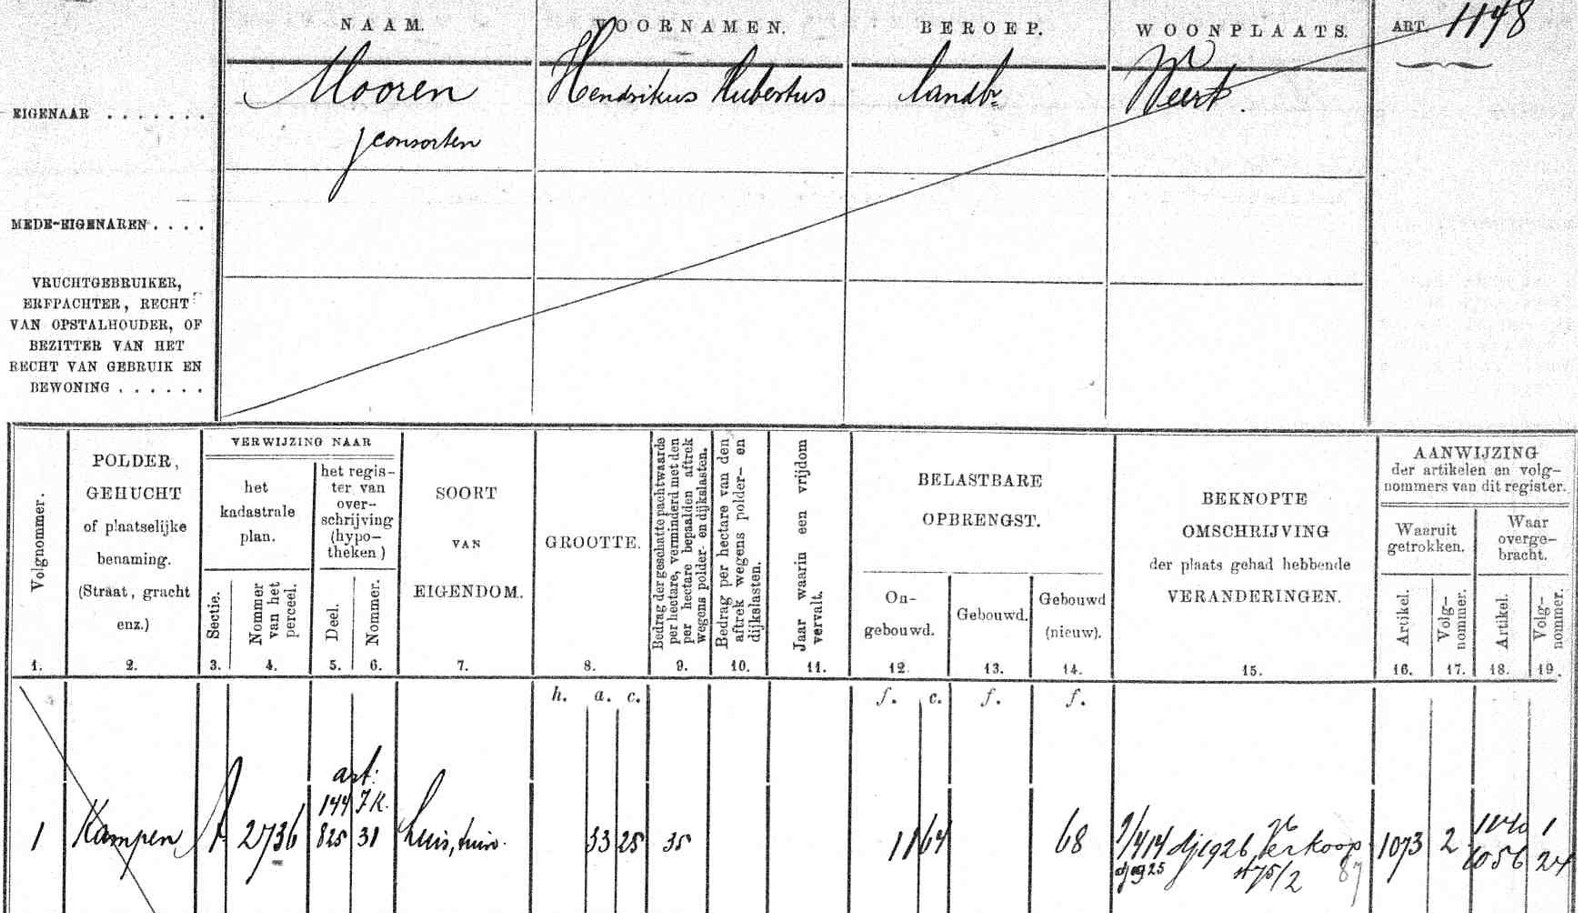 NAAM. VOORNAMEN. BEROEP. WOONPLAATS. ART. 1148
EIGENAAR . . . . . . . Mooren Hendrikus Hubertus landbr Weert.
consorten
MEDE-EIGENAREN . . . .
VRUCHTGEBRUIKER,
ERFPACHTER, RECHT
VAN OPSTALHOUDER, OF
BEZITTER VAN HET
RECHT VAN GEBRUIK EN
BEWONING . . . . . .
Volgnommer.
1.
POLDER,
GEHUCHT
of plaatselijke
benaming.
(Straat, gracht
enz.)
2.
VERWIJZING NAAR
het
kadastrale
plan.
Sectie.
3.
Nommer
van het
perceel.
4.
het regis-
ter van
over-
schrijving
(hypo-
theken)
Deel.
5.
Nommer.
6.
SOORT
VAN
EIGENDOM.
7.
GROOTTE.
8.
Bedrag der geschatte pachtwaarde
per hectare, verminderd met den
per hectare bepaalden aftrek
wegens polder- en dijkslasten.
9.
Bedrag per hectare van den
aftrek wegens polder- en
dijkslasten.
10.
Jaar waarin een vrijdom
vervalt.
11.
BELASTBARE
OPBRENGST.
On-
gebouwd.
12.
Gebouwd.
13.
Gebouwd
(nieuw).
14.
BEKNOPTE
OMSCHRIJVING
der plaats gehad hebbende
VERANDERINGEN.
15.
AANWIJZING
der artikelen en volg-
nommers van dit register.
Waaruit
getrokken.
Artikel.
16.
Volg-
nommer.
17.
Waar
overge-
bracht.
Artikel.
18.
Volg-
nommer.
19.
h. a. c. f. c. f. f.
art:
144 J K.
1 Kampen A 2736 825 31 huis, tuin. 33 25 35 11 64 68 dj 1926 Verkoop 1073 2 1
dj 1925 75/2 87 1056 24